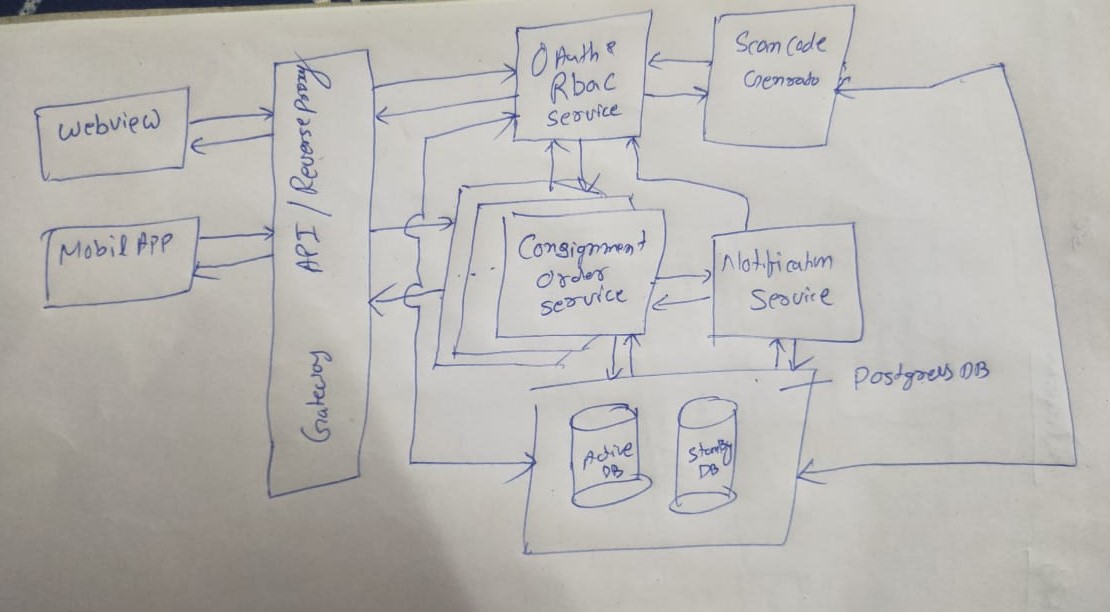 Webview
Mobil APP
API / Reverse Proxy
Gateway
OAuth &
Rbac
Service
Scan Code
Consignment
Order
Service
Notification
Service
Postgres DB
Active
DB
DB